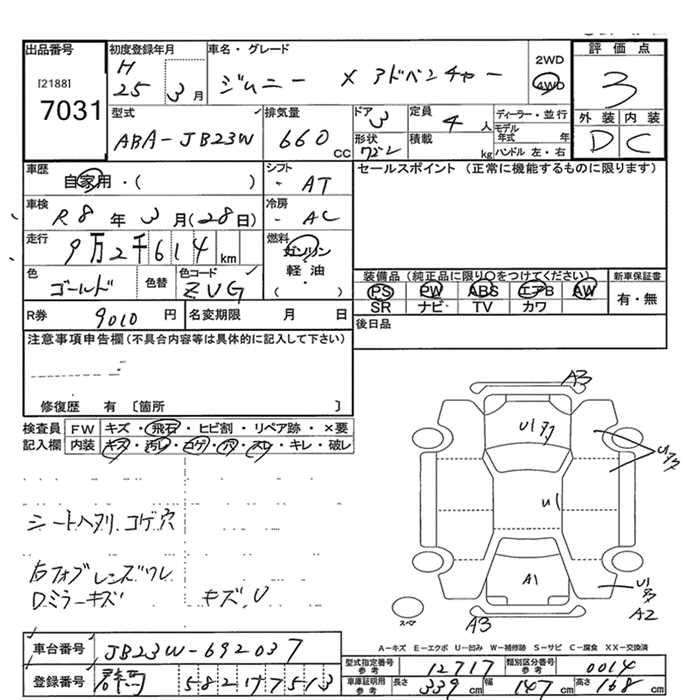 出品番号
[2188]
7031
初度登録年月
H 25年 3月
車名・グレード
ジムニー X アドベンチャー
2WD
4WD
評価点
3
外装 内装
D C
型式
ABA-JB23W
排気量
660 CC
ドア 3
形状 ワゴン
定員 4 人
積載 kg
ディーラー・並行
モデル年式 年
ハンドル 左・右
車歴
自家用・( )
シフト
AT
セールスポイント (正常に機能するものに限ります)
車検
R8年 3月(28日)
冷房
AC
走行
9万2千614 km
燃料
ガソリン
軽油
( )
色
ゴールド
色替
色コード
ZVG
装備品(純正品に限り○をつけてください)
新車保証書
PS PW ABS エアB AW
SR ナビ TV カワ
有・無
R券 9010 円
名変期限 月 日
後日品
注意事項申告欄(不具合内容等は具体的に記入して下さい)
修復歴 有 〔箇所 〕
検査員記入欄
FW キズ・飛石・ヒビ割・リペア跡・×要
内装 キズ・汚れ・コゲ・穴・スレ・キレ・破レ
シートヘタリ、コゲ穴
フォグレンズワレ
Dミラーキズ
キズ、U
A3
U1
U1
U1
A1
U1
A2
A3
スペア
A-キズ E-エクボ U-凹み W-補修跡 S-サビ C-腐食 XX-交換済
車台番号 JB23W-692037
登録番号 群馬 582 ワ 7513
型式指定番号 参考 12717
類別区分番号 参考 0014
車庫証明用 参考 長さ 339 cm 幅 147 cm 高さ 168 cm